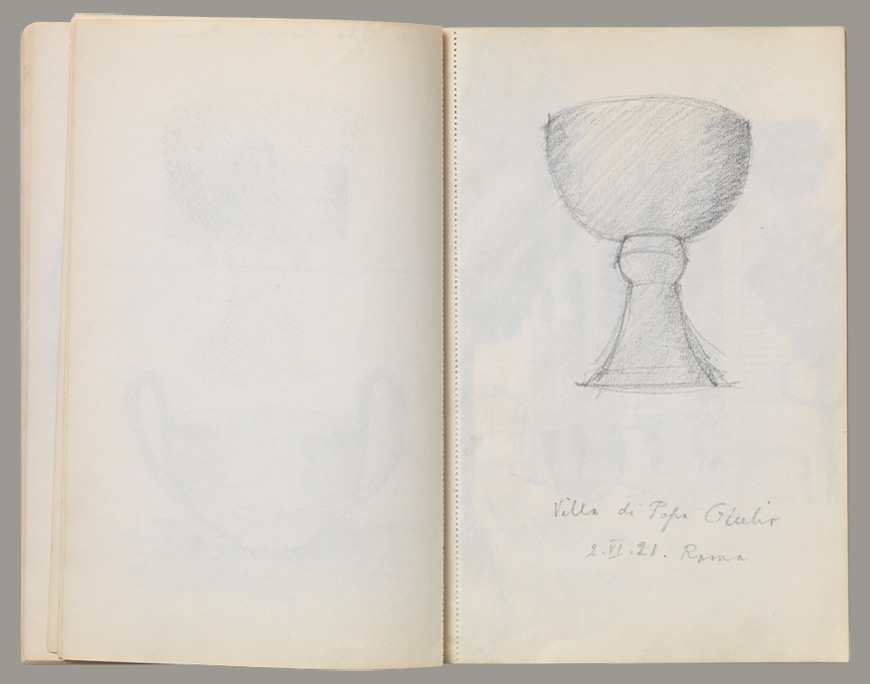 Villa di Papa Giulio
2.VI.21. Roma